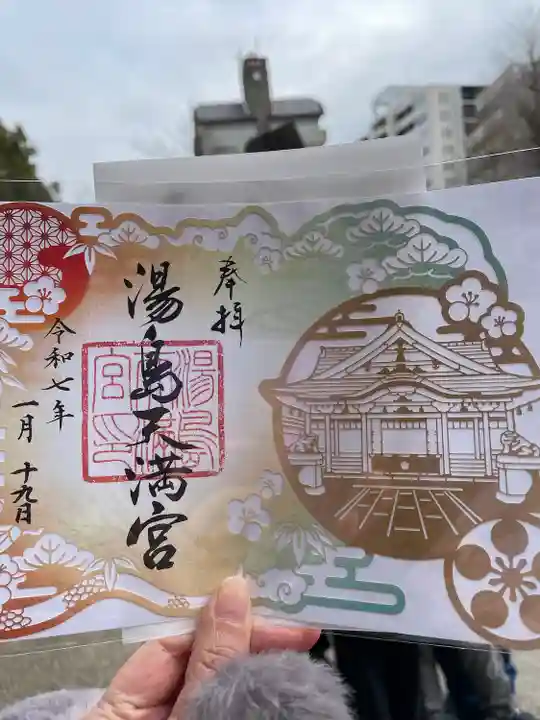 奉拝
湯島天満宮
湯島天満宮印
令和七年
一月十九日